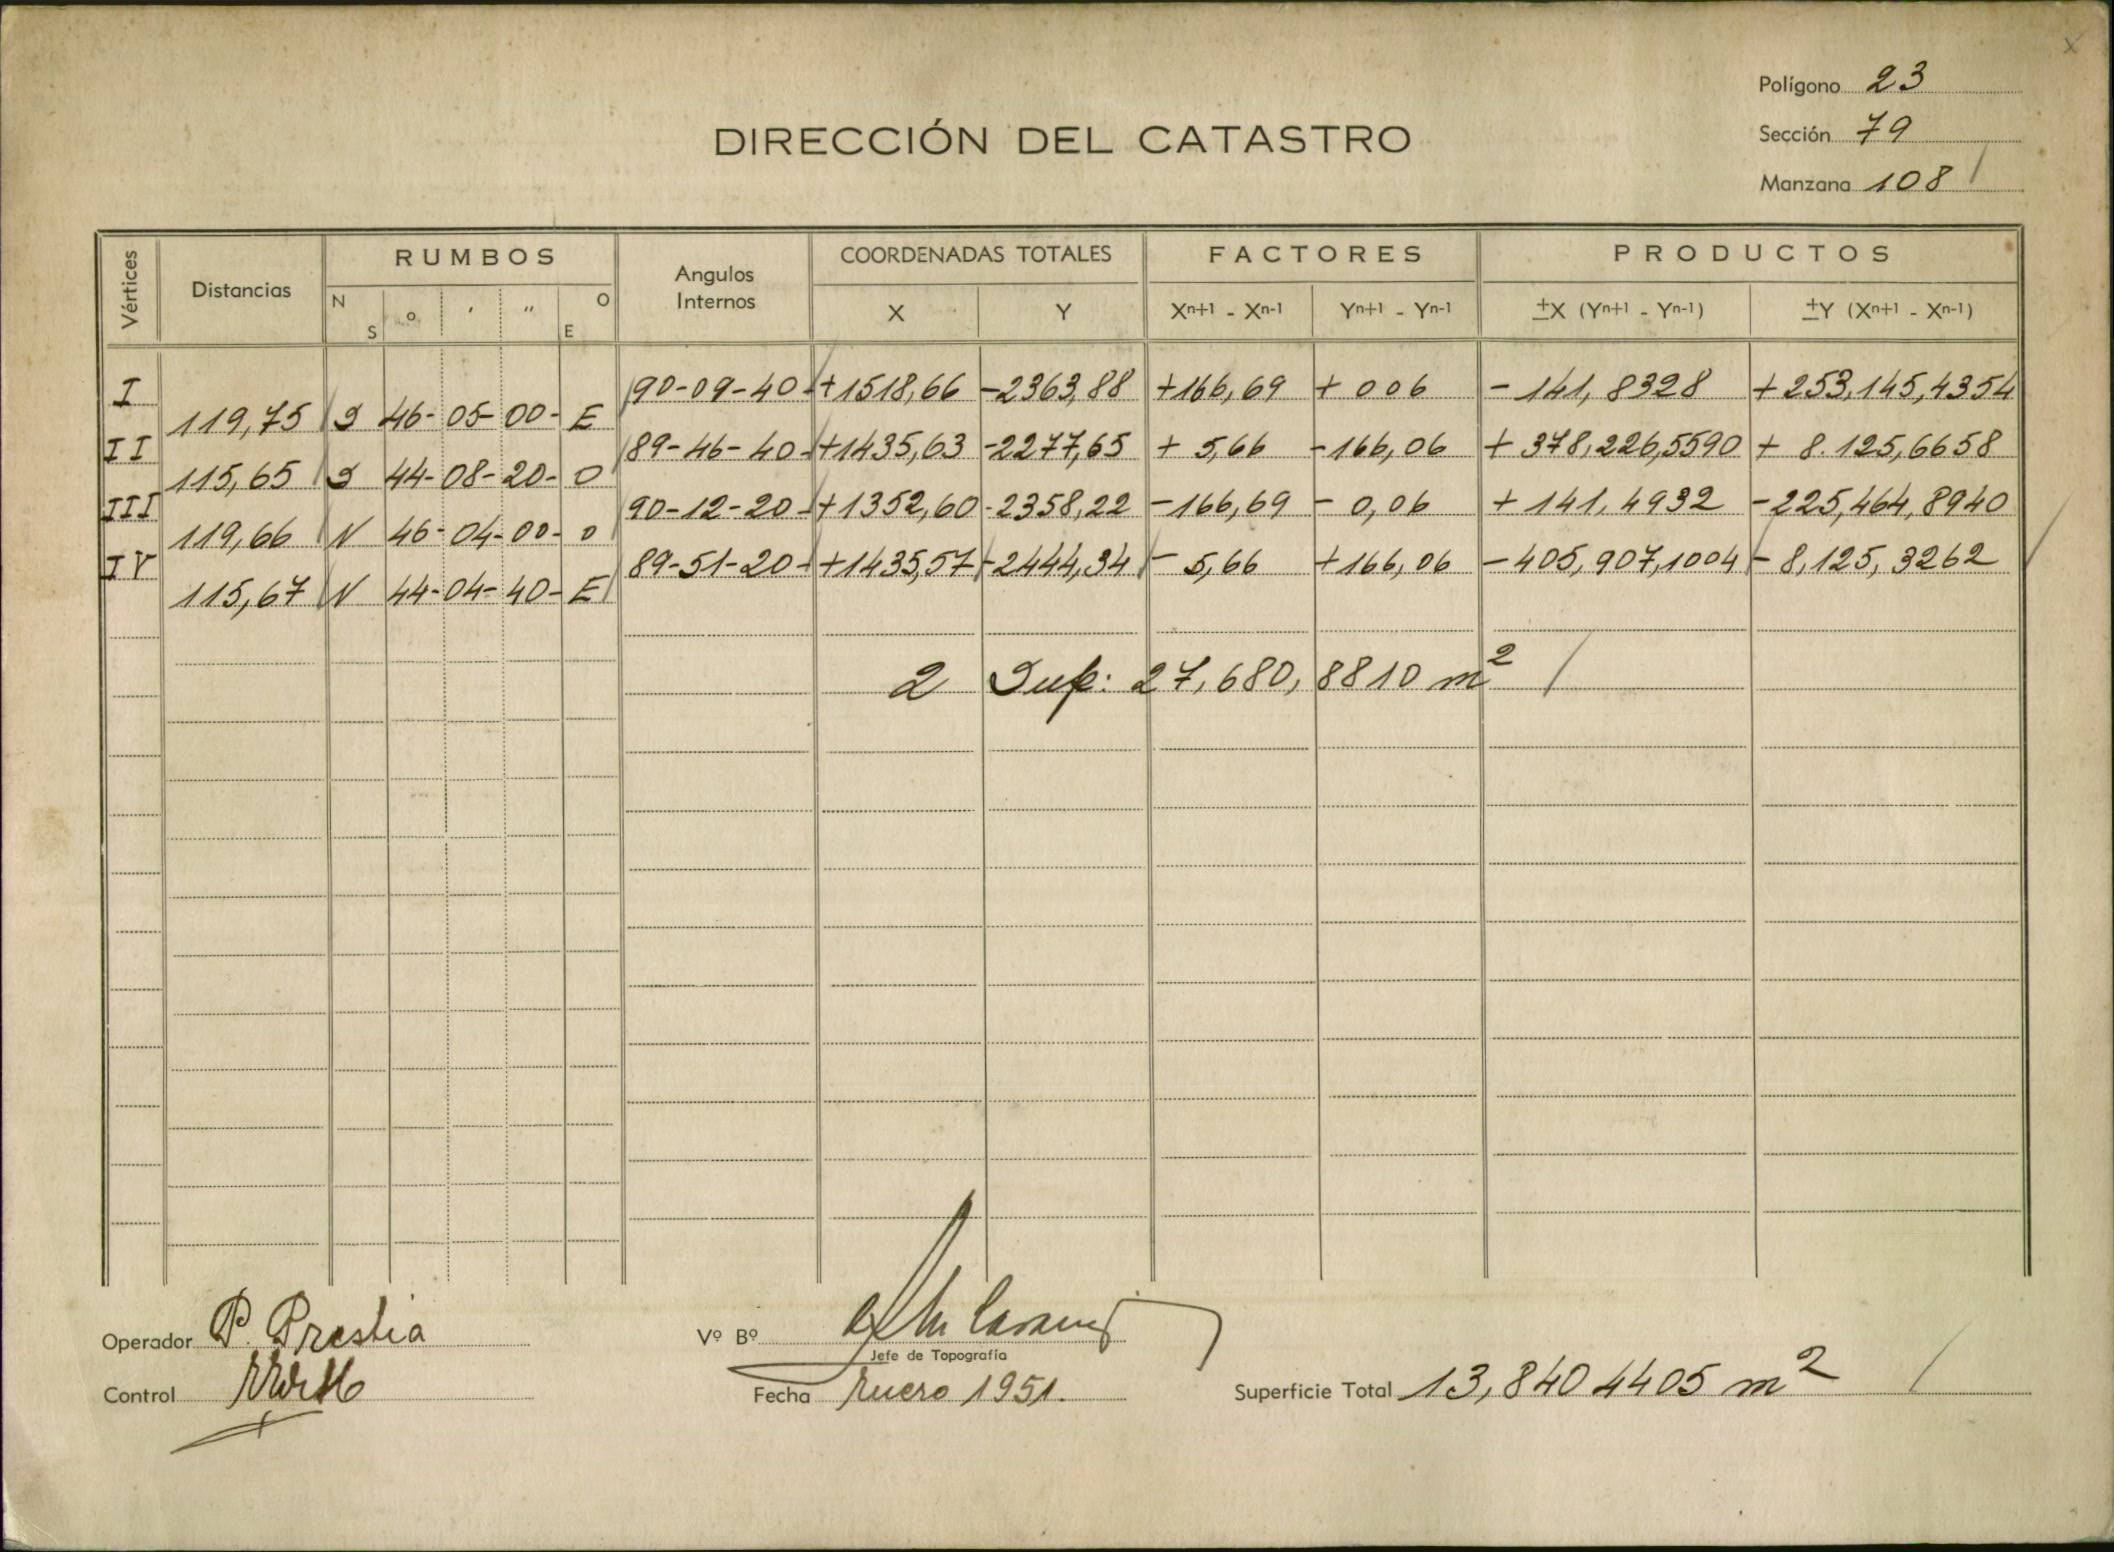 Polígono 23
DIRECCIÓN DEL CATASTRO
Sección 79
Manzana 108
Vértices Distancias RUMBOS Angulos Internos COORDENADAS TOTALES FACTORES PRODUCTOS
N S ° ' " O E X Y Xⁿ⁺¹ - Xⁿ⁻¹ Yⁿ⁺¹ - Yⁿ⁻¹ ±X (Yⁿ⁺¹ - Yⁿ⁻¹) ±Y (Xⁿ⁺¹ - Xⁿ⁻¹)
I 90-09-40 +1518,66 -2363,88 +166,69 + 006 - 141,8328 + 253,145,4354
119,75 S 46-05-00- E
II 89-46-40 +1435,63 -2277,65 + 5,66 -166,06 + 378,226,5590 + 8.125,6658
115,65 S 44-08-20- O
III 90-12-20 +1352,60 -2358,22 -166,69 - 0,06 + 141,4932 -225,464,8940
119,66 N 46-04-00- O
IV 89-51-20 +1435,57 -2444,34 - 5,66 +166,06 -405,907,1004 - 8,125,3262
115,67 N 44-04-40- E
2 Sup: 27,680,8810 m²
Operador P. Prestia
Vº Bº
Jefe de Topografía
Control
Fecha Enero 1951.
Superficie Total 13,840 4405 m²